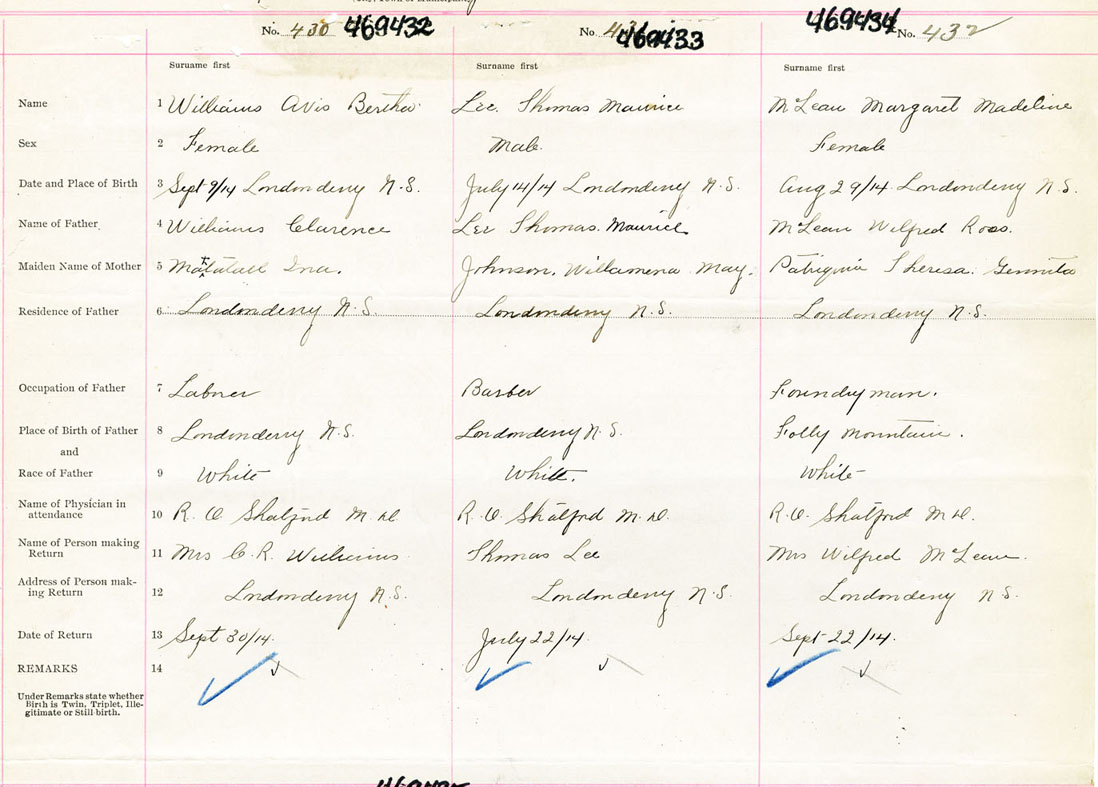 No. 430 469432 No. 469433 469434 No. 432
Surname first Surname first Surname first
Name 1 Williams Avis Bertha Lee Thomas Maurice McLean Margaret Madeline
Sex 2 Female Male. Female
Date and Place of Birth 3 Sept 9/14 Londonderry N.S. July 14/14 Londonderry N.S. Aug 29/14 Londonderry N.S.
Name of Father 4 Williams Clarence Lee Thomas. Maurice McLean Wilfred Ross.
Maiden Name of Mother 5 Matatall Ina. Johnson, Willamena May. Theresa.
Residence of Father 6 Londonderry N.S. Londonderry N.S. Londonderry N.S.
Occupation of Father 7 Labrer Barber Foundryman.
Place of Birth of Father 8 Londonderry N.S. Londonderry N.S. Folly Mountain.
and
Race of Father 9 White White. White
Name of Physician in
attendance 10 R. O. Shatford M.D. R.O. Shatford M.D. R.O. Shatford M.D.
Name of Person making
Return 11 Mrs C. R. Williams Thomas Lee Mrs Wilfred McLean.
Address of Person mak-
ing Return 12 Londonderry N.S. Londonderry N.S. Londonderry N.S.
Date of Return 13 Sept 30/14. July 22/14. Sept 22/14.
REMARKS 14
Under Remarks state whether
Birth is Twin, Triplet, Ille-
gitimate or Still-birth.